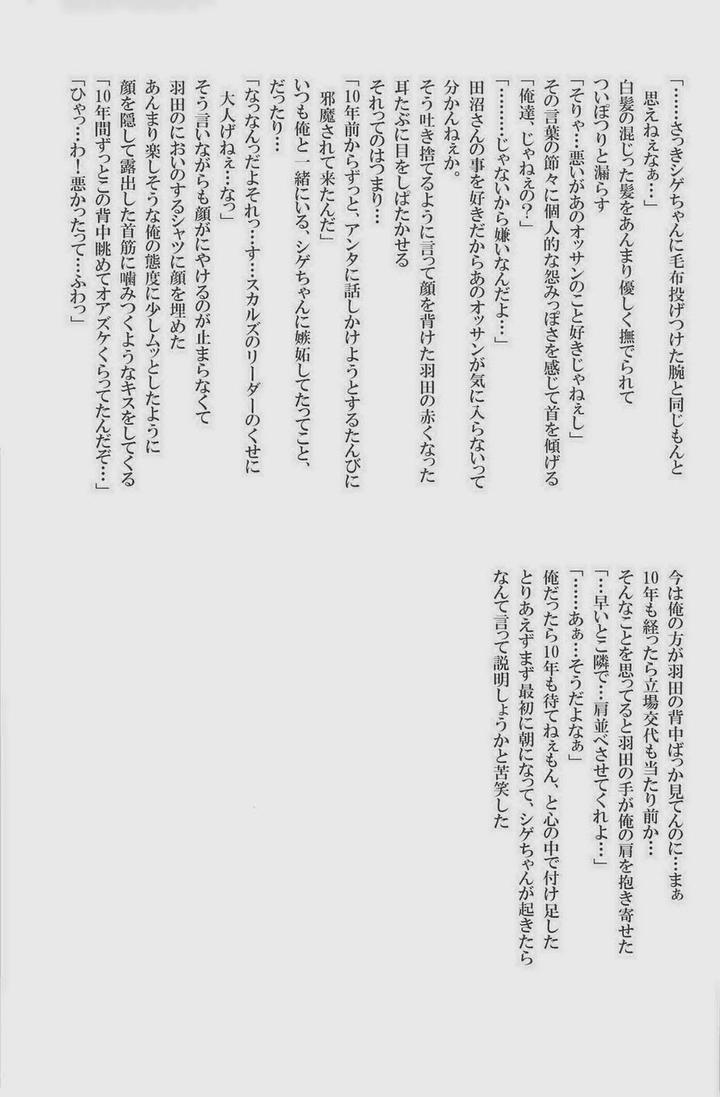 「……さっきシゲちゃんに毛布投げつけた腕と同じもんと
思えねぇなぁ…」
白髪の混じった髪をあんまり優しく撫でられて
ついぽつりと漏らす
「そりゃ…悪いがあのオッサンのこと好きじゃねぇし」
その言葉の節々に個人的な怨みっぽさを感じて首を傾げる
「俺達、じゃねぇの?」
「………じゃないから嫌いなんだよ…」
田沼さんの事を好きだからあのオッサンが気に入らないって
分かんねぇか。
そう吐き捨てるように言って顔を背けた羽田の赤くなった
耳たぶに目をしばたかせる
それってのはつまり…
「10年前からずっと、アンタに話しかけようとするたんびに
邪魔されて来たんだ」
いつも俺と一緒にいる、シゲちゃんに嫉妬してたってこと、
だったり…
「なっなんっだよそれっ…す…スカルズのリーダーのくせに
大人げねぇ…なっ」
そう言いながらも顔がにやけるのが止まらなくて
羽田のにおいのするシャツに顔を埋めた
あんまり楽しそうな俺の態度に少しムッとしたように
顔を隠して露出した首筋に噛みつくようなキスをしてくる
「10年間ずっとこの背中眺めてオアズケくらってたんだぞ…」
「ひゃっ…わ!悪かったって…ふわっ」
今は俺の方が羽田の背中ばっか見てんのに…まぁ
10年も経ったら立場交代も当たり前か…
そんなことを思ってると羽田の手が俺の肩を抱き寄せた
「…早いとこ隣で…肩並べさせてくれよ…」
「……あぁ…そうだよなぁ」
俺だったら10年も待てねぇもん、と心の中で付け足した
とりあえずまず最初に朝になって、シゲちゃんが起きたら
なんて言って説明しょうかと苦笑した